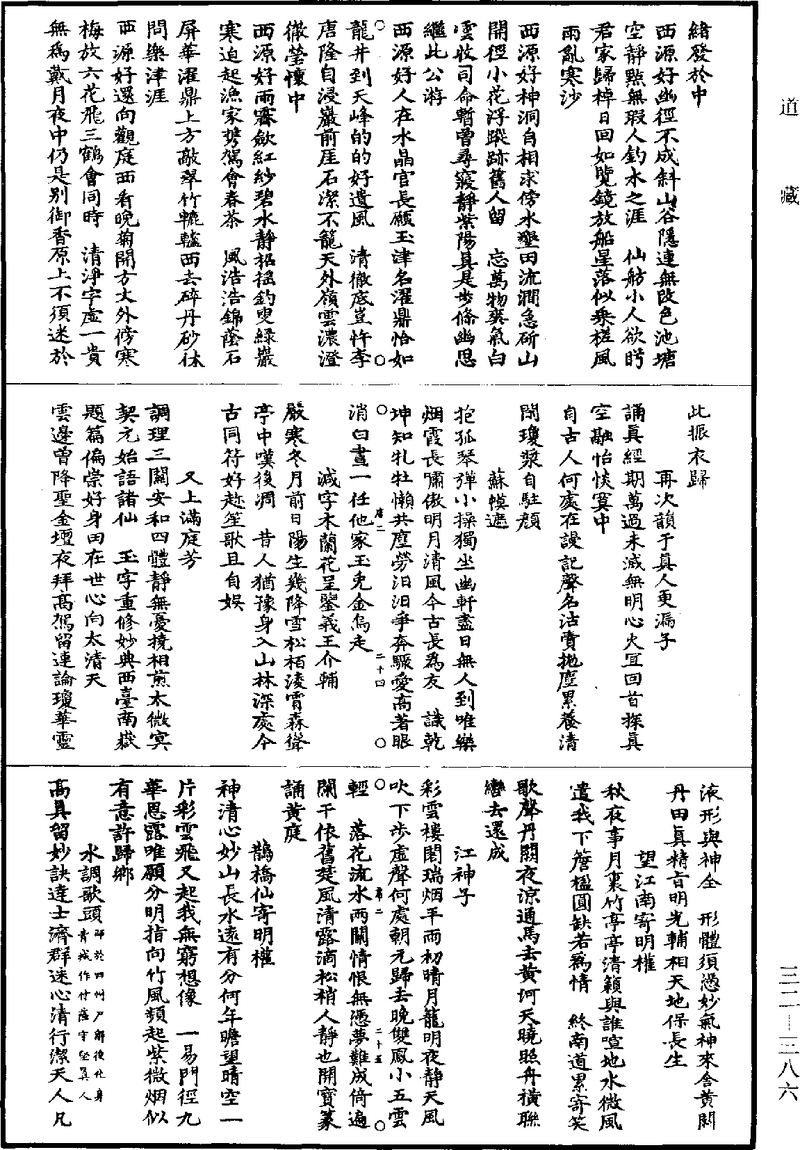 道藏
緒發於中
西源好幽徑不成斜山谷隱連無改色池塘
空靜點無瑕人釣水之涯　仙舫小人欲眄
君家歸棹日回如覽鏡放船星落似乘槎風
雨亂寒沙
西源好神洞自相求傍水墾田流澗急斫山
開徑小花浮蹤跡舊人留　忘萬物爽氣白
雲收司命暫曾尋窽靜紫陽真是步條幽思
繼此公游
西源好人在水晶宮長願玉津名濯鼎恰如
龍井到天峰的的好遺風　清徹底豈忤李
唐隆自浸巖前厓石潔不籠天外嶺雲濃澄
徹瑩懷中
西源好雨霽歛紅紗碧水靜招搖釣叟綠巖
寒迫起漁家甓駕會春茶　風浩浩錦蔭石
屏華濯鼎上方敲翠竹轆轤西去碎丹砂休
問樂津涯
西源好還向觀庭西看晚菊開方丈外傍寒
梅放六花飛三鶴會同時　清淨字虛一貴
無為戴月夜中仍是别御香原上不須迷於
此振衣歸
再次韻于真人更漏子
誦真經期萬過未減無明心火宜回首探真
空融怡恢寞中
自古人何處在謾記聲名沽賣拋塵累養清
閑瓊漿自駐顏
蘇幙遮
抱孤琴彈小操獨坐幽軒盡日無人到唯樂
烟霞長嘯傲明月清風今古長為友　識乾
坤知牝牡懶共塵勞汨汨爭奔驟愛高著眼
消白晝一任他家玉兔金烏走
唐二　二十四
減字木蘭花呈鑒義王介輔
嚴寒冬月前日陽生幾降雪松栢淩霄森聳
亭中嘆後凋　昔人猶豫身入山林深處今
古同符好趂笙歌且自娛
又上滿庭芳
調理三關安和四體靜無憂撓相煎太微冥
契元始語諸仙　玉字重修妙典西臺南嶽
題篇偏崇好身田在世心向太清天
雲邊曾降聖金壇夜拜髙駕留連論瓊華靈
液形與神全　形體須憑妙氣神來舍黃閼
丹田真精旨明光輔相天地保長生
望江南寄明權
秋夜事月裏竹亭亭清籟與誰喧地水微風
遣我下簷楹圓缺若為情　終南道累寄笑
歌聲丹闕夜涼通馬去黃河天曉照舟橫聯
轡去還成
江神子
彩雲樓閣瑞烟平雨初晴月籠明夜靜天風
吹下步虛聲何處朝元歸去晚雙鳳小五雲
輕　落花流水兩關情恨無憑夢難成倚遍
唐二　二十五
闌干依舊楚風清露滴松梢人靜也開寶篆
誦黃庭
鵲橋仙寄明權
神清心妙山長水遠有分何年瞻望晴空一
片彩雲飛又起我無窮想像　一易門徑九
華恩露唯願分明指向竹風頻起紫微烟似
有意許歸鄉
水調歌頭
髙真留妙訣達士濟群迷心清行潔天人凡
三二—三八六